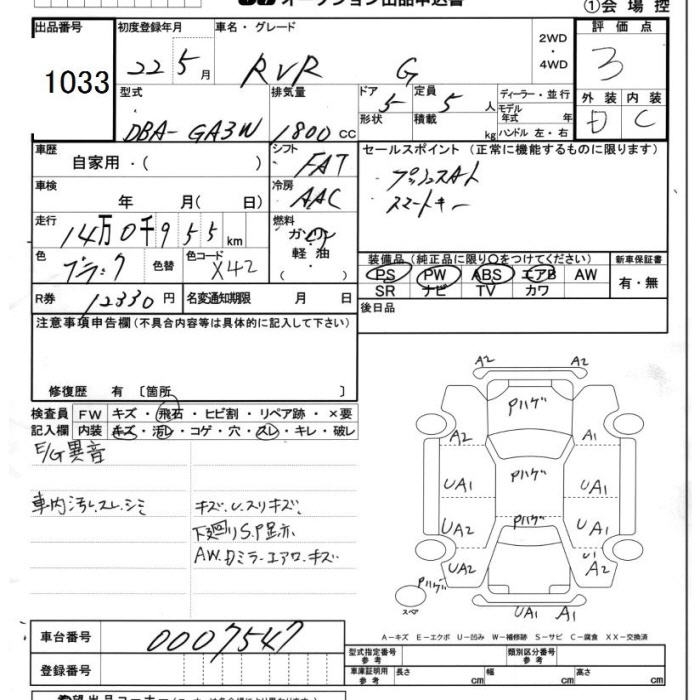 オークション出品申込書 ①会場控
出品番号 1033
初度登録年月 22 5月
車名・グレード RVR G
2WD・4WD
評価点 3
外装 D 内装 C
型式 DBA-GA3W
排気量 1800cc
ドア 5
定員 5人
形状
積載 kg
ディーラー・並行
モデル年式 年
ハンドル 左・右
車歴 自家用・( )
シフト FAT
セールスポイント (正常に機能するものに限ります)
・プッシュスタート
・スマートキー
車検 年 月( 日)
冷房 AAC
走行 14万0千955km
燃料 ガソリン・軽油・( )
色 ブラック
色替
色コード X42
装備品 (純正品に限り○をつけてください)
PS PW ABS エアB AW
SR ナビ TV カワ
新車保証書 有・無
R券 12330円
名変通知期限 月 日
後日品
注意事項申告欄 (不具合内容等は具体的に記入して下さい)
修復歴 有 〔箇所 〕
検査員記入欄
FW キズ・飛石・ヒビ割・リペア跡・×要
内装 キズ・汚レ・コゲ・穴・スレ・キレ・破レ
E/G異音
車内汚レ.スレ.シミ
キズ.U.スリキズ
下廻りS.P足亦
AW.Dミラーエアロ.キズ
A2 A2
Pハゲ
A2 A1
Pハゲ
UA1 UA1
Pハゲ
UA2 UA1
UA2 U1 A2
Pハゲ
スペア
UA1 A1
A-キズ E-エクボ U-凹み W-補修跡 S-サビ C-腐食 XX-交換済
車台番号 0007547
登録番号
型式指定番号 参考
類別区分番号 参考
車庫証明用 参考 長さ cm 幅 cm 高さ cm